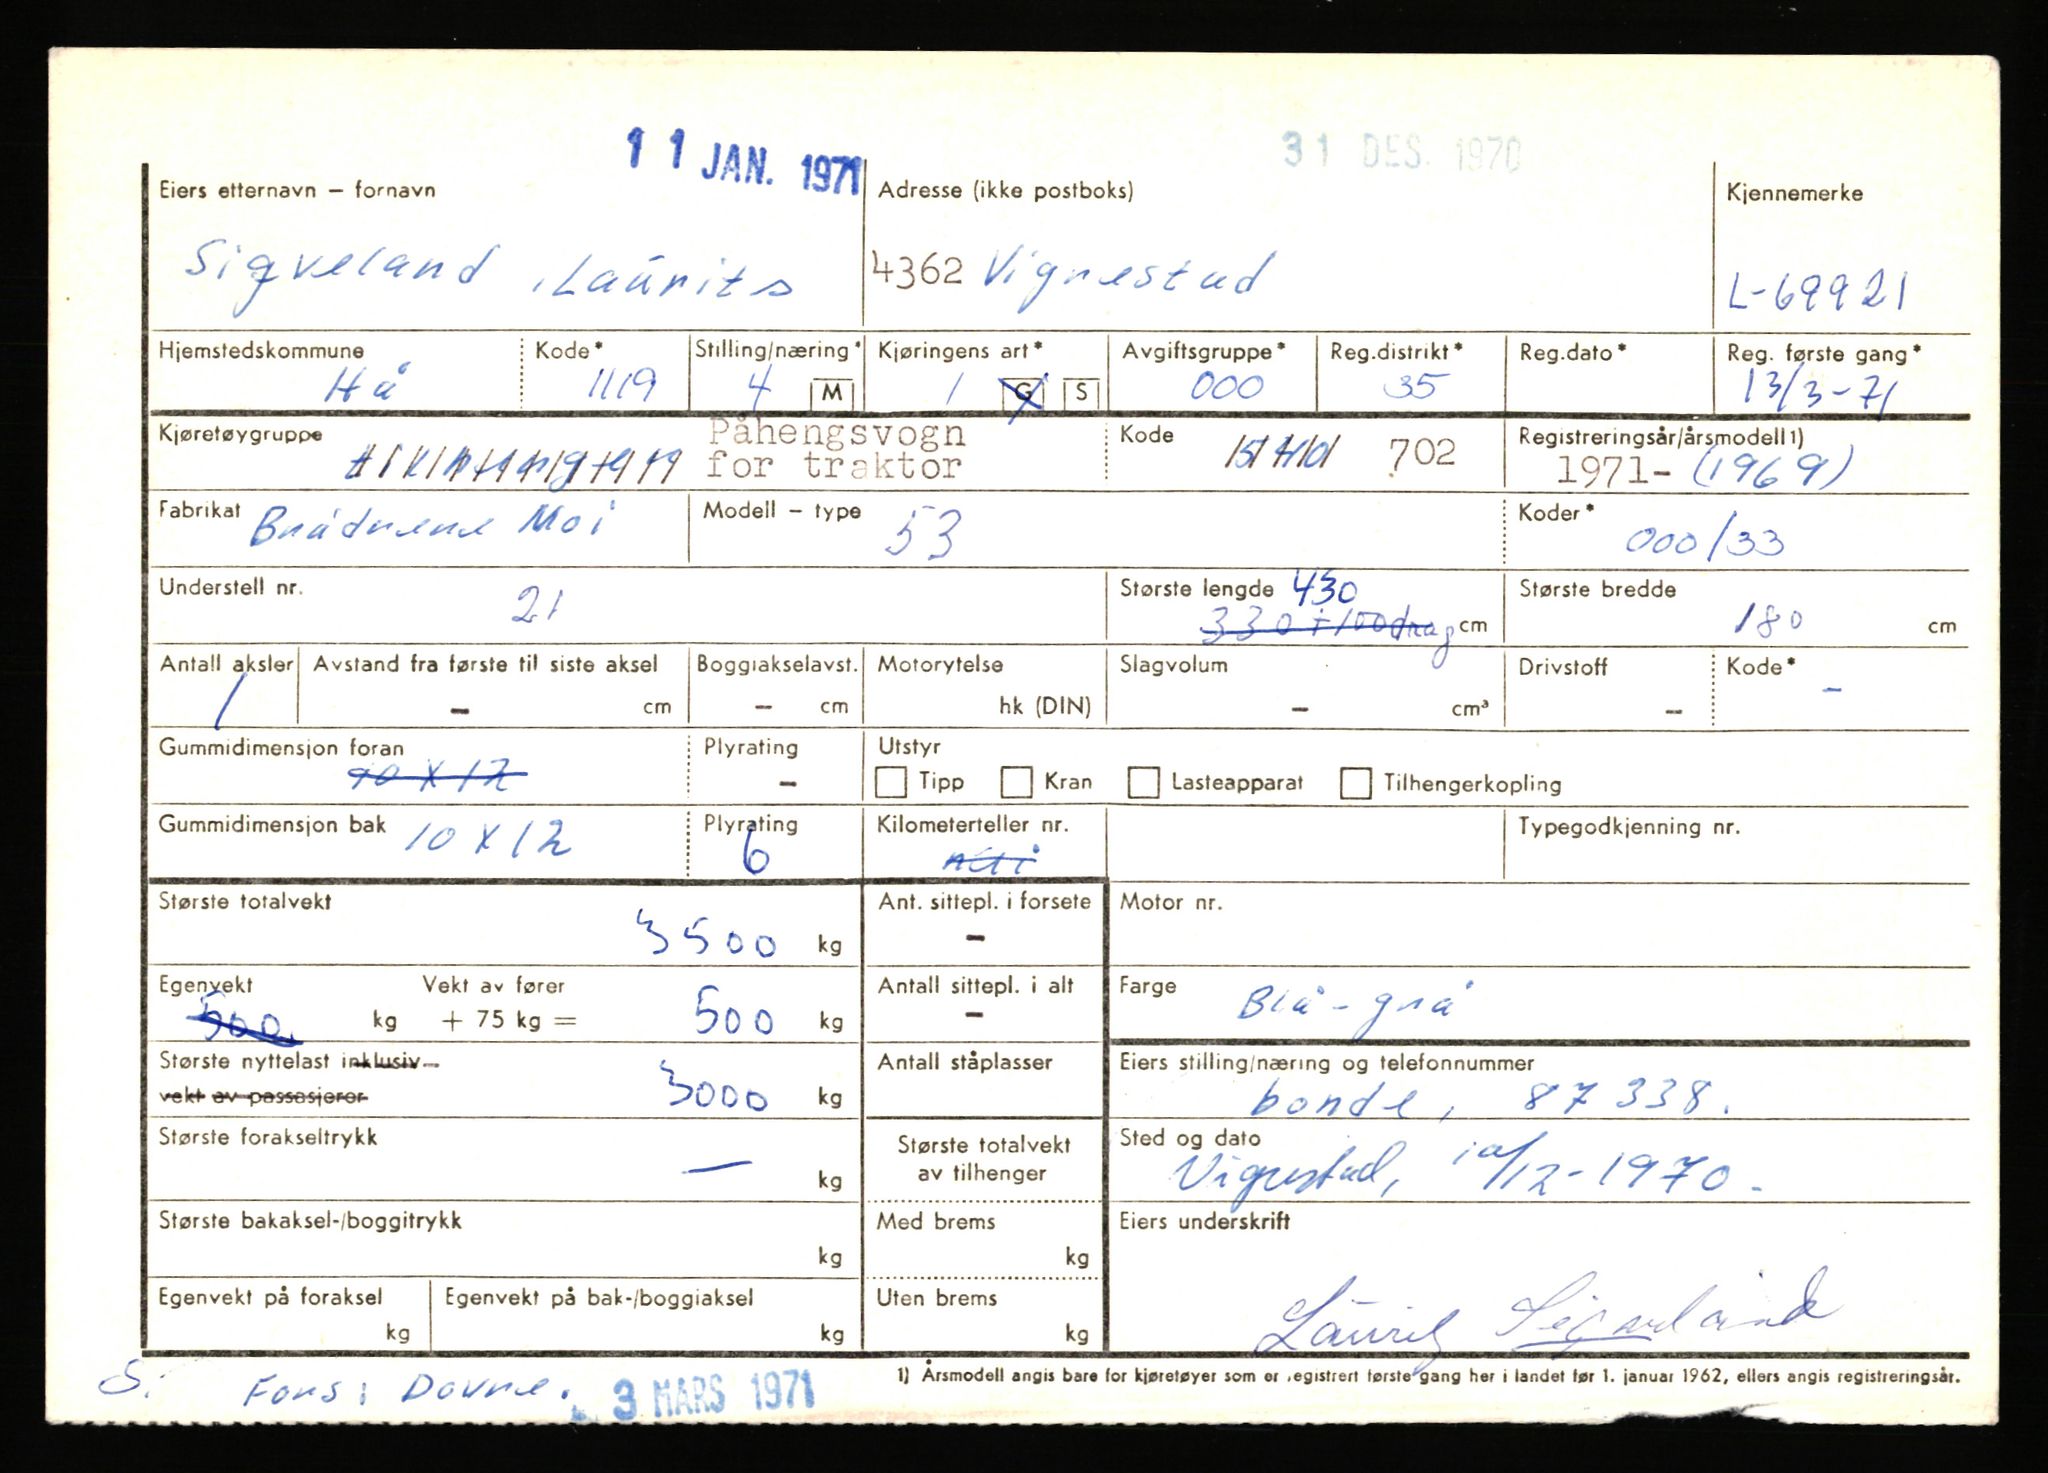 11 JAN. 1971
31 DES. 1970
Eiers etternavn – fornavn
Adresse (ikke postboks)
Kjennemerke
Sigveland, Laurits
4362 Vigrestad
L-69921
Hjemstedskommune
Kode*
Stilling/næring*
Kjøringens art*
Avgiftsgruppe*
Reg.distrikt*
Reg.dato*
Reg. første gang*
Hå
1119
4 M
1 G S
000
35
13/3-71
Kjøretøygruppe
Påhengsvogn
for traktor
Kode
702
Registreringsår/årsmodell1)
1971- (1969)
Fabrikat
Brødrene Moi
Modell – type
53
Koder*
000/33
Understell nr.
21
Største lengde 430
330 + 100 drag cm
Største bredde
180 cm
Antall aksler
1
Avstand fra første til siste aksel
– cm
Boggiakselavst.
– cm
Motorytelse
hk (DIN)
Slagvolum
– cm³
Drivstoff
–
Kode*
–
Gummidimensjon foran
10 x 12
Plyrating
–
Utstyr
Tipp Kran Lasteapparat Tilhengerkopling
Gummidimensjon bak 10 x 12
Plyrating
6
Kilometerteller nr.
Typegodkjenning nr.
Største totalvekt
3500 kg
Ant. sittepl. i forsete
–
Motor nr.
Egenvekt
500 kg
Vekt av fører
+ 75 kg = 500 kg
Antall sittepl. i alt
–
Farge
Blå-grå
Største nyttelast inklusiv
vekt av passasjerer
3000 kg
Antall ståplasser
Eiers stilling/næring og telefonnummer
bonde, 87338.
Største forakseltrykk
— kg
Største totalvekt
av tilhenger
Sted og dato
Vigrestad, 10/12-1970.
Største bakaksel-/boggitrykk
kg
Med brems
kg
Eiers underskrift
Egenvekt på foraksel
kg
Egenvekt på bak-/boggiaksel
kg
Uten brems
kg
Laurits Sigveland
1) Årsmodell angis bare for kjøretøyer som er registrert første gang her i landet før 1. januar 1962, ellers angis registreringsår.
S.
3 MARS 1971